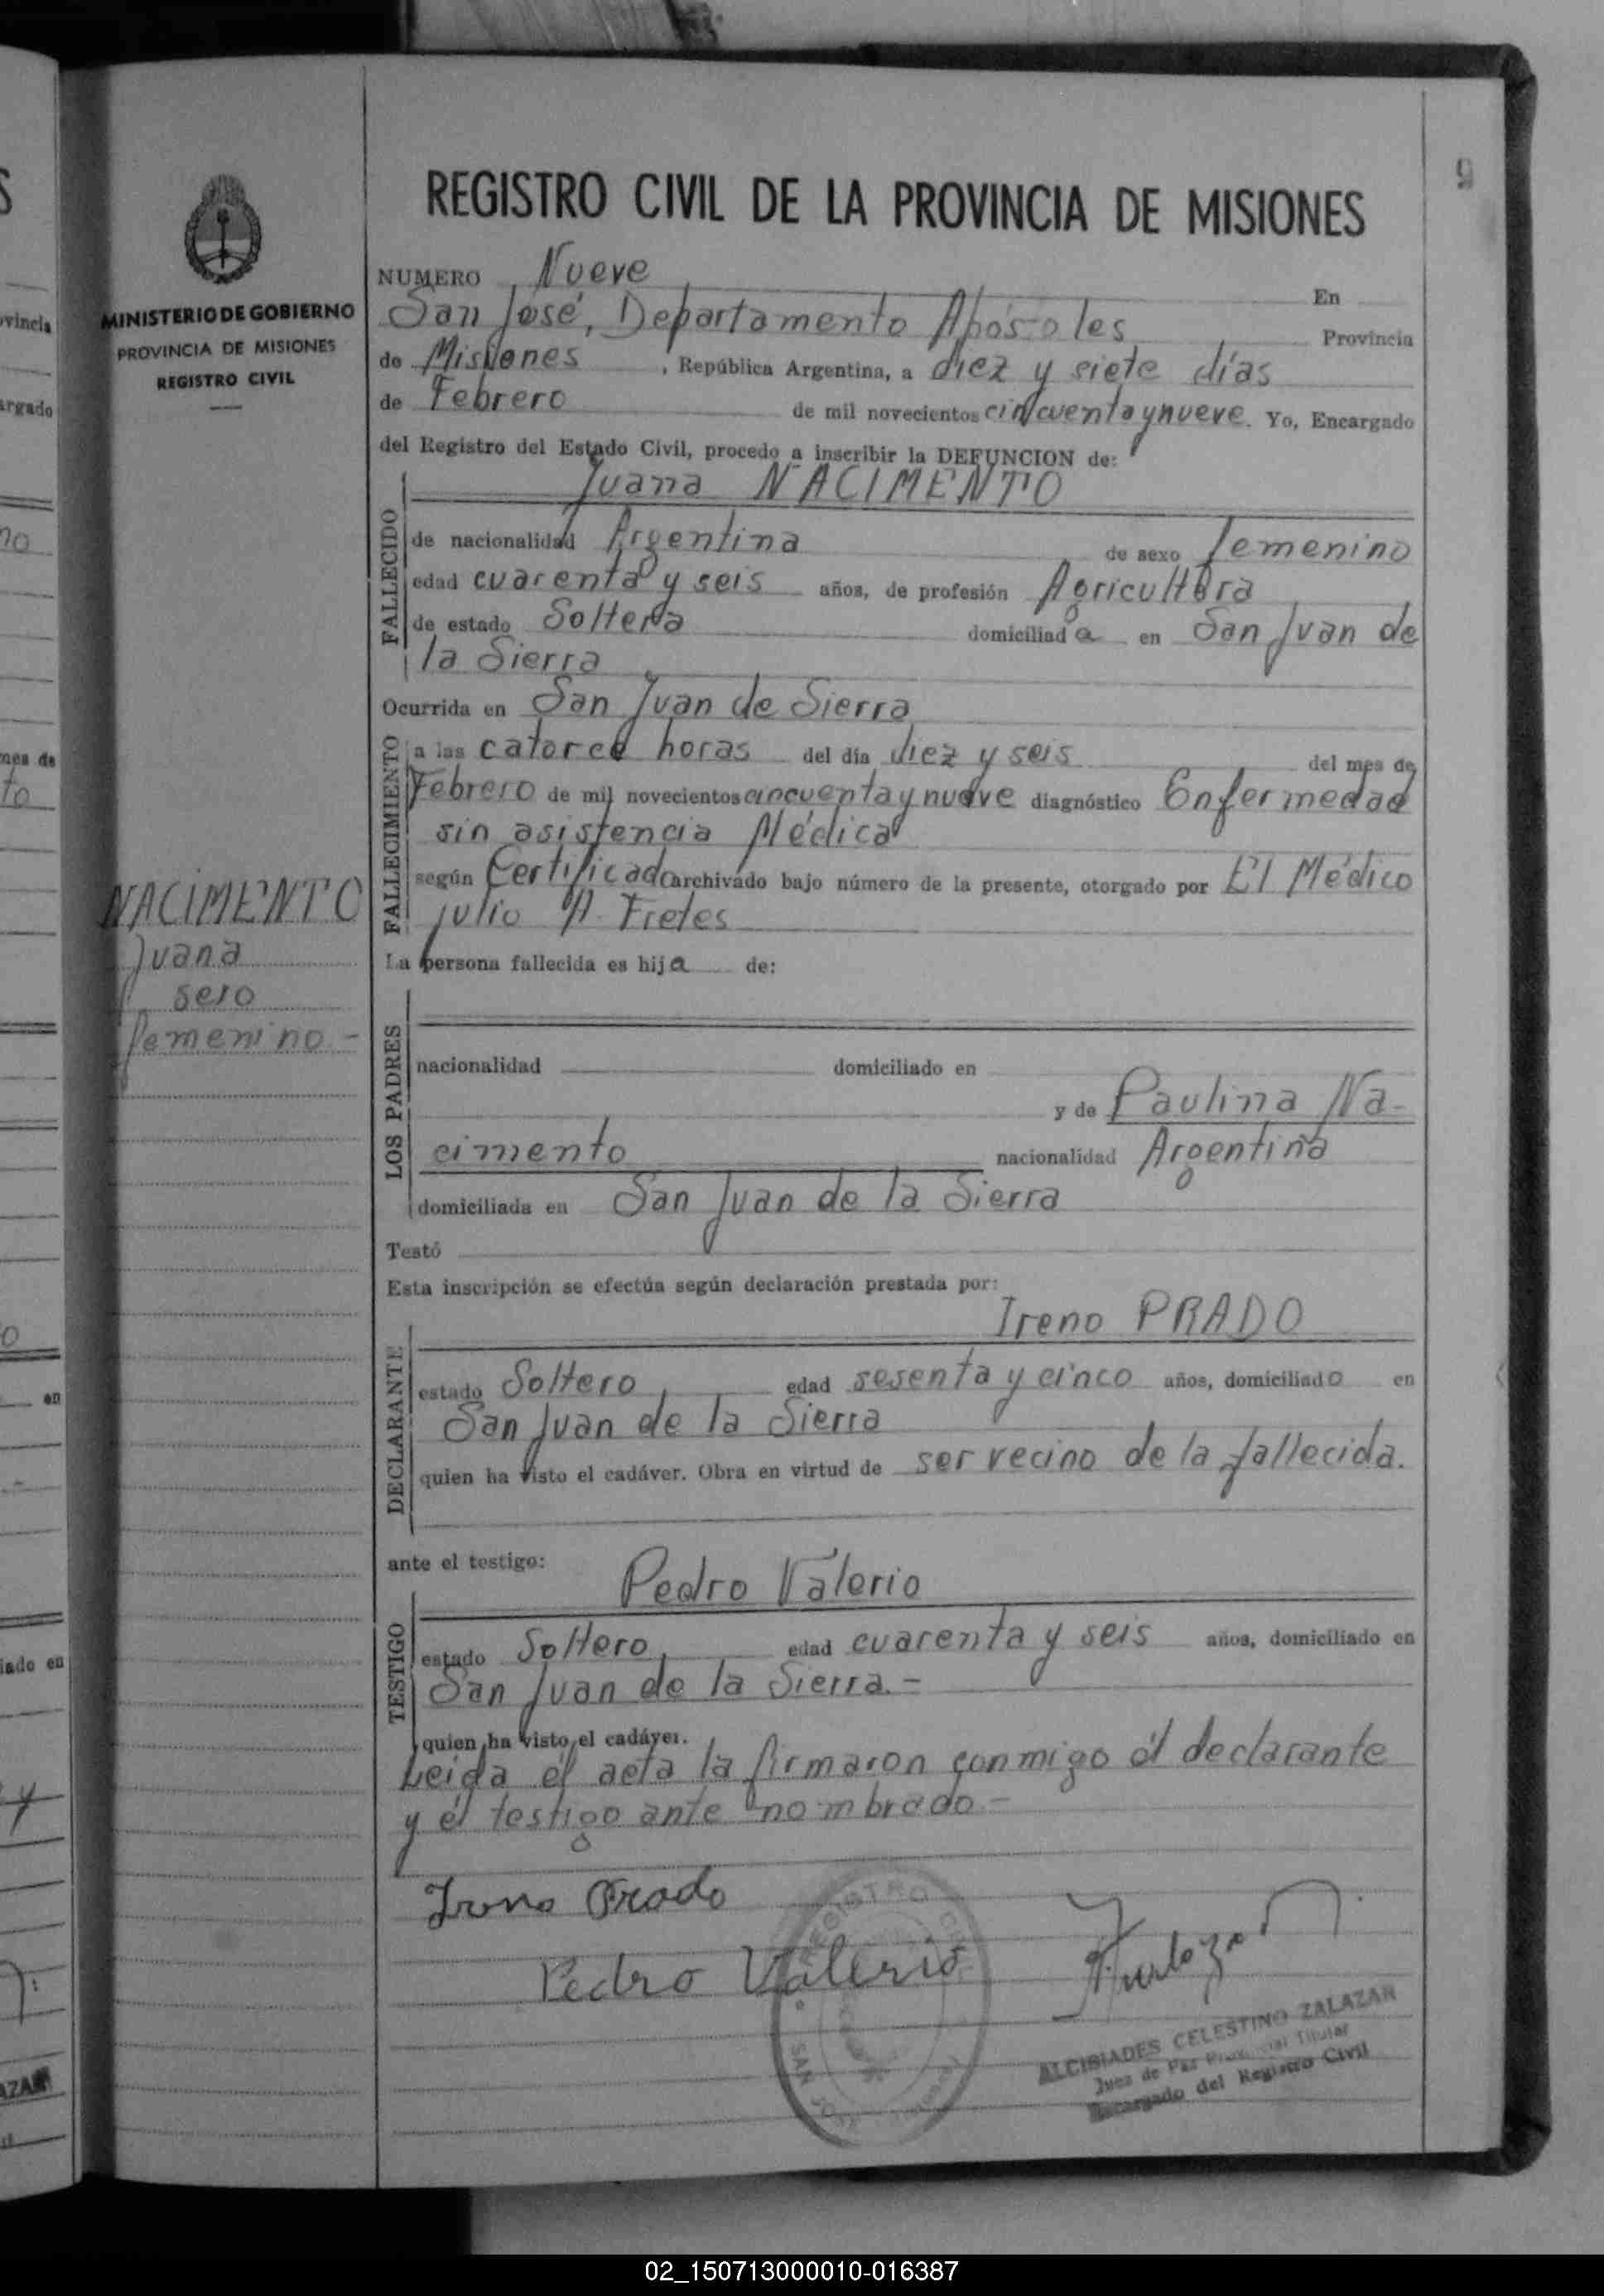 9
REGISTRO CIVIL DE LA PROVINCIA DE MISIONES
MINISTERIO DE GOBIERNO
PROVINCIA DE MISIONES
REGISTRO CIVIL
NUMERO Nueve
En
San José, Departamento Apóstoles Provincia
de Misiones, República Argentina, a diez y siete días
de Febrero de mil novecientos cincuenta y nueve. Yo, Encargado
del Registro del Estado Civil, procedo a inscribir la DEFUNCION de:
Juana NACIMENTO
FALLECIDO
de nacionalidad Argentina de sexo femenino
edad cuarenta y seis años, de profesión Agricultora
de estado Soltera domiciliada en San Juan de
la Sierra
Ocurrida en San Juan de Sierra
FALLECIMIENTO
a las catorce horas del día diez y seis del mes de
Febrero de mil novecientos cincuenta y nueve diagnóstico Enfermedad
sin asistencia Médica
según Certificado archivado bajo número de la presente, otorgado por El Médico
Julio A. Fretes
NACIMENTO
Juana
sexo
femenino -
La persona fallecida es hija de:
LOS PADRES
nacionalidad domiciliado en
y de Paulina Na-
cimento nacionalidad Argentina
domiciliada en San Juan de la Sierra
Testó
Esta inscripción se efectúa según declaración prestada por:
Ireno PRADO
DECLARANTE
estado Soltero, edad sesenta y cinco años, domiciliado en
San Juan de la Sierra
quien ha visto el cadáver. Obra en virtud de ser vecino de la fallecida.
ante el testigo:
Pedro Valerio
TESTIGO
estado Soltero, edad cuarenta y seis años, domiciliado en
San Juan de la Sierra.-
quien ha visto el cadáver.
Leida el acta la firmaron conmigo el declarante
y el testigo ante nombrado.-
Ireno Prado
Pedro Valerio
REGISTRO
SAN JOSE
ALCIBIADES CELESTINO ZALAZAR
Juez de Paz Provincial Titular
Encargado del Registro Civil
02_150713000010-016387